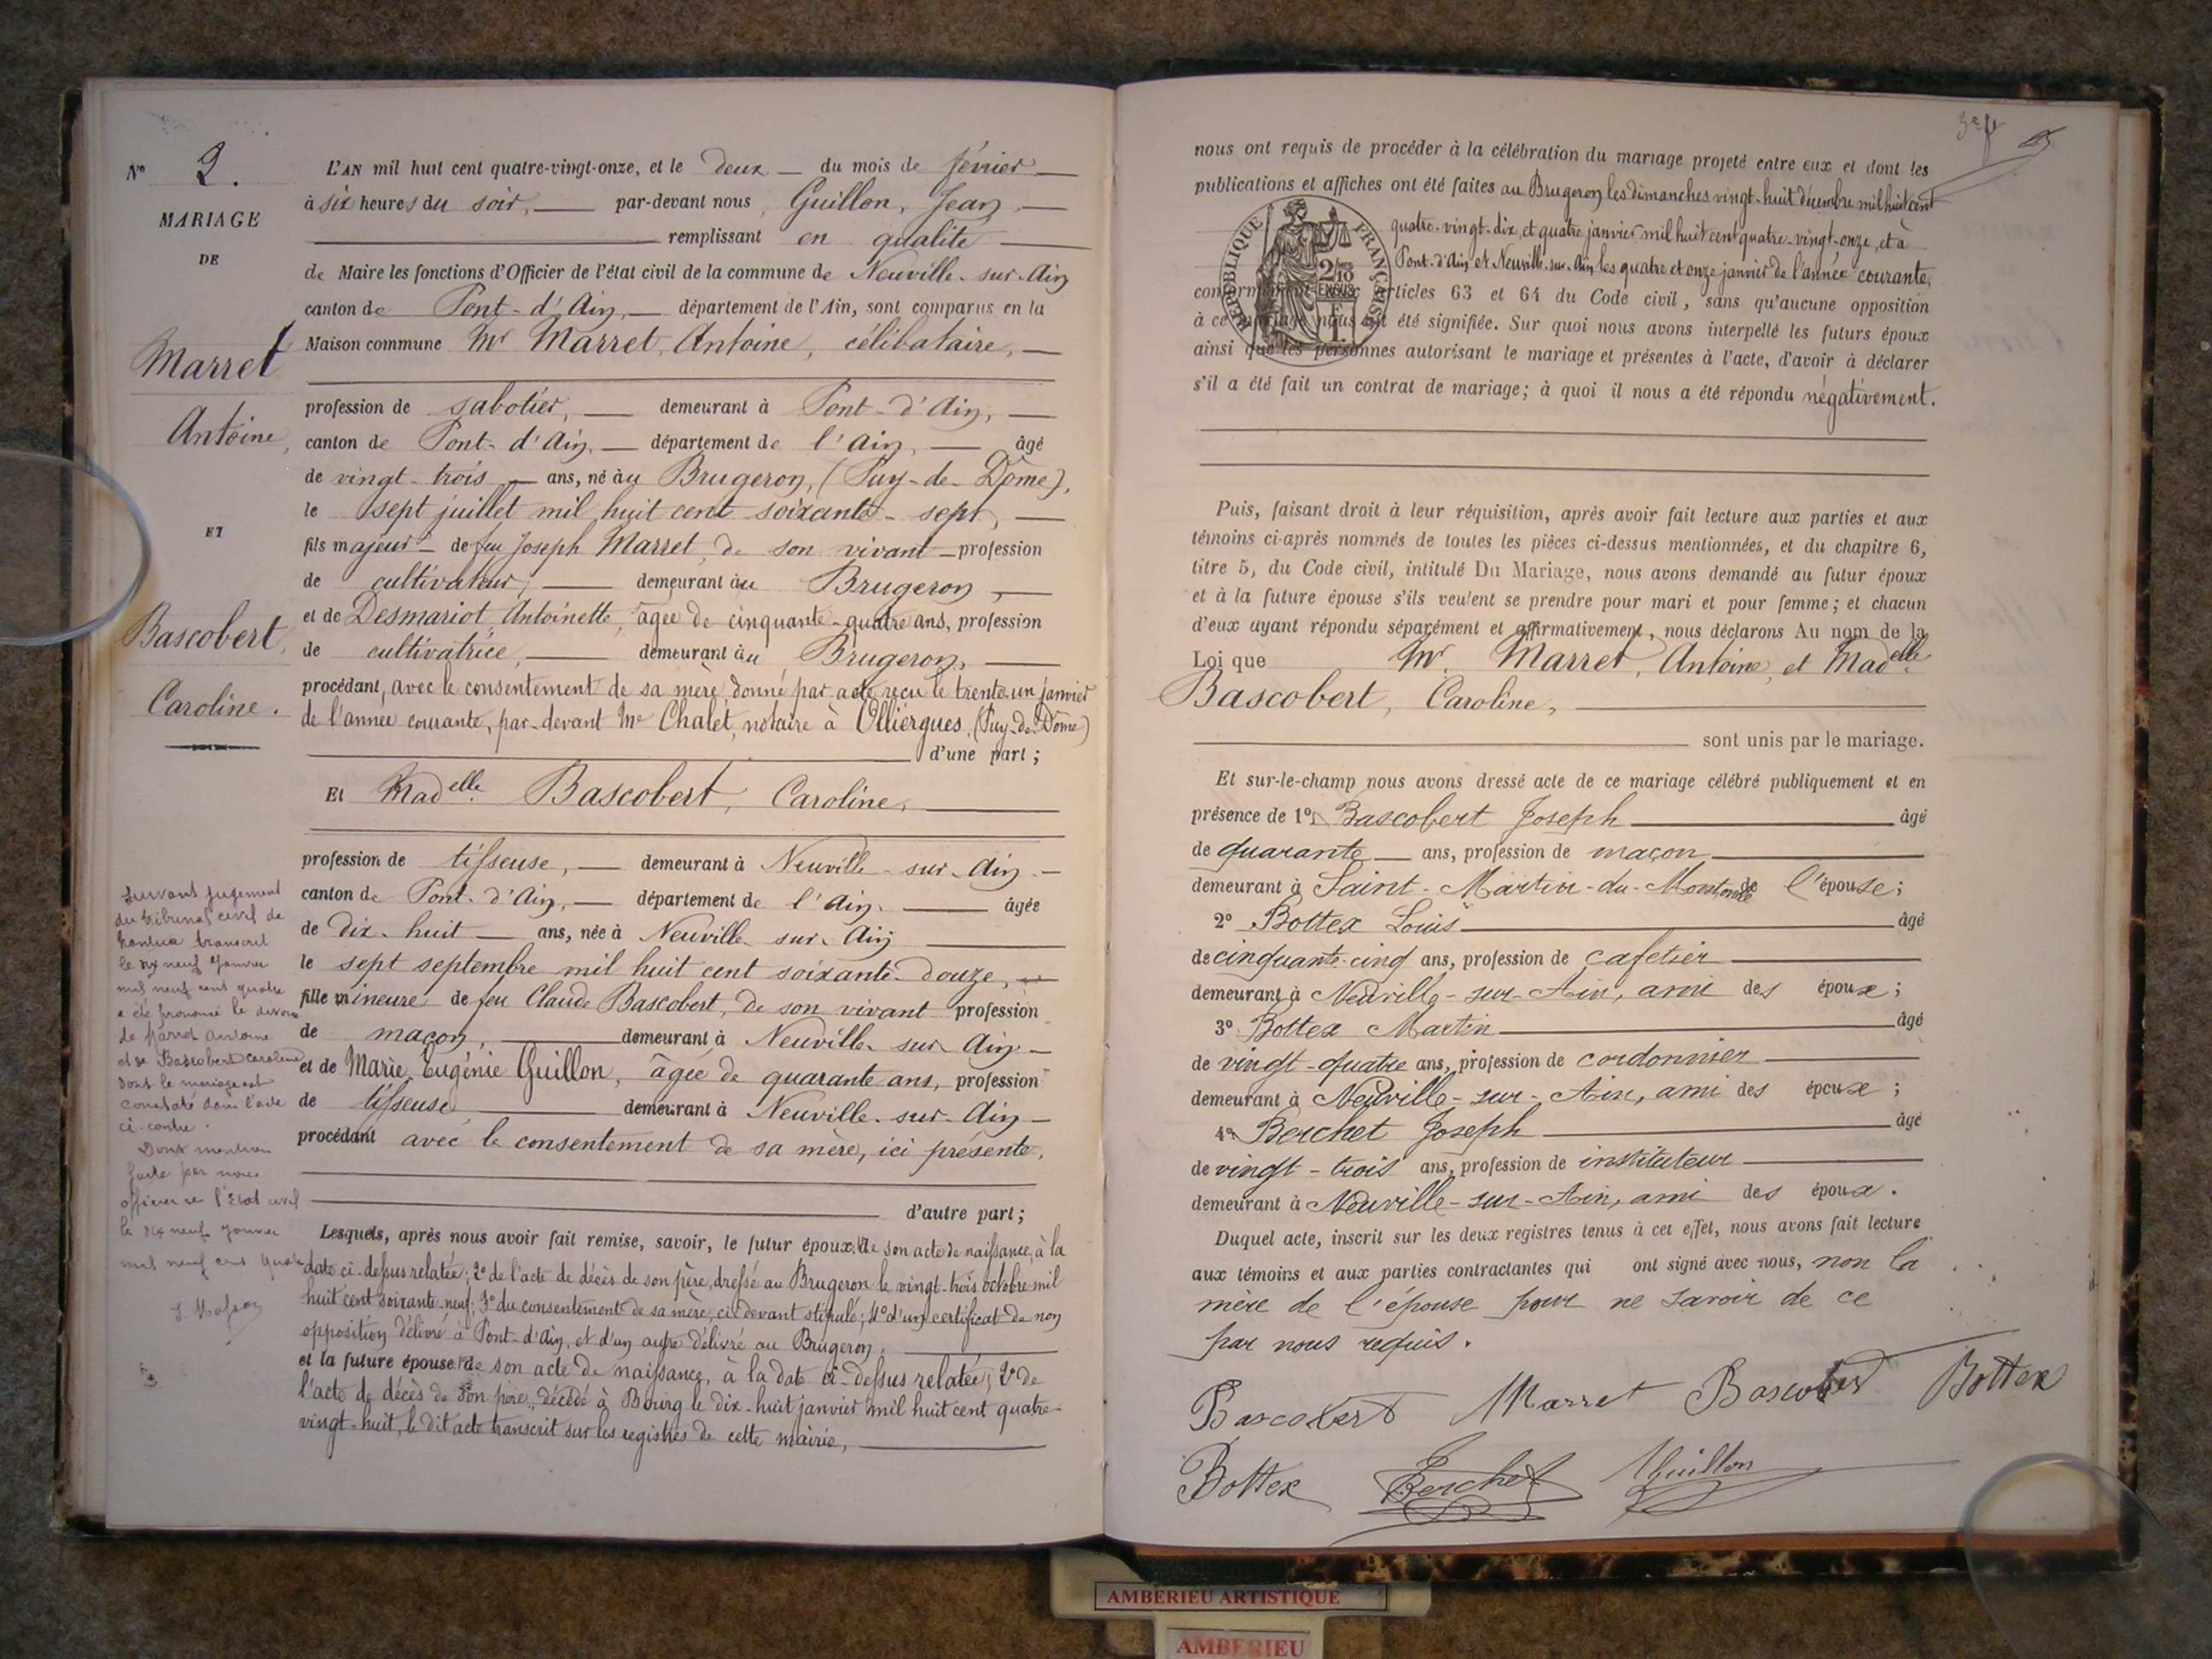 N° 2.
MARIAGE
DE
Marret
Antoine,
ET
Bascobert,
Caroline.
Suivant jugement
du tribunal civil de
Nantua transcrit
le dix neuf Janvier
mil neuf cent quatre
a été prononcé le divorce
de Marret Antoine
et de Bascobert Caroline
dont le mariage est
constaté dans l'acte
ci-contre.
Dont mention
faite par nous
officier de l'Etat civil
le dix neuf Janvier
mil neuf cent quatre
L'AN mil huit cent quatre-vingt-onze, et le deux du mois de février
à six heures du soir, par-devant nous, Guillon, Jean,
remplissant en qualité
de Maire les fonctions d'Officier de l'état civil de la commune de Neuville-sur-Ain
canton de Pont-d'Ain, département de l'Ain, sont comparus en la
Maison commune Mr Marret, Antoine, célibataire,
profession de sabotier, demeurant à Pont-d'Ain,
canton de Pont-d'Ain, département de l'Ain, âgé
de vingt-trois ans, né au Brugeron, (Puy-de-Dôme),
le sept juillet mil huit cent soixante-sept,
fils majeur de feu Joseph Marret, de son vivant profession
de cultivateur, demeurant au Brugeron,
et de Desmariot Antoinette, âgée de cinquante-quatre ans, profession
de cultivatrice, demeurant au Brugeron,
procédant, avec le consentement de sa mère, donné par acte reçu le trente-un janvier
de l'année courante, par-devant Me Chalet, notaire à Olliergues, (Puy-de-Dôme)
d'une part;
Et Madelle Bascobert, Caroline,
profession de tisseuse, demeurant à Neuville-sur-Ain
canton de Pont-d'Ain, département de l'Ain, âgée
de dix-huit ans, née à Neuville-sur-Ain
le sept septembre mil huit cent soixante-douze,
fille mineure de feu Claude Bascobert, de son vivant profession
de maçon, demeurant à Neuville-sur-Ain
et de Marie Eugénie Guillon, âgée de quarante ans, profession
de tisseuse demeurant à Neuville-sur-Ain
procédant avec le consentement de sa mère, ici présente,
d'autre part;
Lesquels, après nous avoir fait remise, savoir, le futur époux: 1° de son acte de naissance, à la
date ci-dessus relatée; 2° de l'acte de décès de son père, dressé au Brugeron le vingt-trois octobre mil
huit cent soixante-neuf; 3° du consentement de sa mère, ci-devant stipulé; 4° d'un certificat de non
opposition délivré à Pont-d'Ain, et d'un autre délivré au Brugeron,
et la future épouse: 1° de son acte de naissance, à la date ci-dessus relatée; 2° de
l'acte de décès de son père, décédé à Bourg le dix-huit janvier mil huit cent quatre-
vingt-huit, le dit acte transcrit sur les registres de cette mairie,
nous ont requis de procéder à la célébration du mariage projeté entre eux et dont les
publications et affiches ont été faites au Brugeron les dimanches vingt-huit décembre mil huit cent
quatre-vingt-dix, et quatre janvier mil huit cent quatre-vingt-onze, et à
Pont-d'Ain et Neuville-sur-Ain les quatre et onze janvier de l'année courante,
conformément aux articles 63 et 64 du Code civil, sans qu'aucune opposition
à ce mariage nous ait été signifiée. Sur quoi nous avons interpellé les futurs époux
ainsi que les personnes autorisant le mariage et présentes à l'acte, d'avoir à déclarer
s'il a été fait un contrat de mariage; à quoi il nous a été répondu négativement.
RÉPUBLIQUE FRANÇAISE
2/10 EN SUS
Puis, faisant droit à leur réquisition, après avoir fait lecture aux parties et aux
témoins ci-après nommés de toutes les pièces ci-dessus mentionnées, et du chapitre 6,
titre 5, du Code civil, intitulé Du Mariage, nous avons demandé au futur époux
et à la future épouse s'ils veulent se prendre pour mari et pour femme; et chacun
d'eux ayant répondu séparément et affirmativement, nous déclarons Au nom de la
Loi que Mr. Marret, Antoine, et Madelle
Bascobert, Caroline,
sont unis par le mariage.
Et sur-le-champ nous avons dressé acte de ce mariage célébré publiquement et en
présence de 1° Bascobert Joseph âgé
de quarante ans, profession de maçon
demeurant à Saint-Martin-du-Mont, oncle de l'épouse;
2° Bottex Louis âgé
de cinquante-cinq ans, profession de cafetier
demeurant à Neuville-sur-Ain, ami des époux;
3° Bottex Martin âgé
de vingt-quatre ans, profession de cordonnier
demeurant à Neuville-sur-Ain, ami des époux;
4° Berchet Joseph âgé
de vingt-trois ans, profession de instituteur
demeurant à Neuville-sur-Ain, ami des époux.
Duquel acte, inscrit sur les deux registres tenus à cet effet, nous avons fait lecture
aux témoins et aux parties contractantes qui ont signé avec nous, non la
mère de l'épouse pour ne savoir de ce
par nous requis.
Bascobert Marret Bascobert Bottex
Bottex Berchet Guillon
AMBERIEU ARTISTIQUE
AMBERIEU